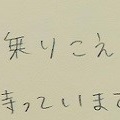 乗りこえ
待っています